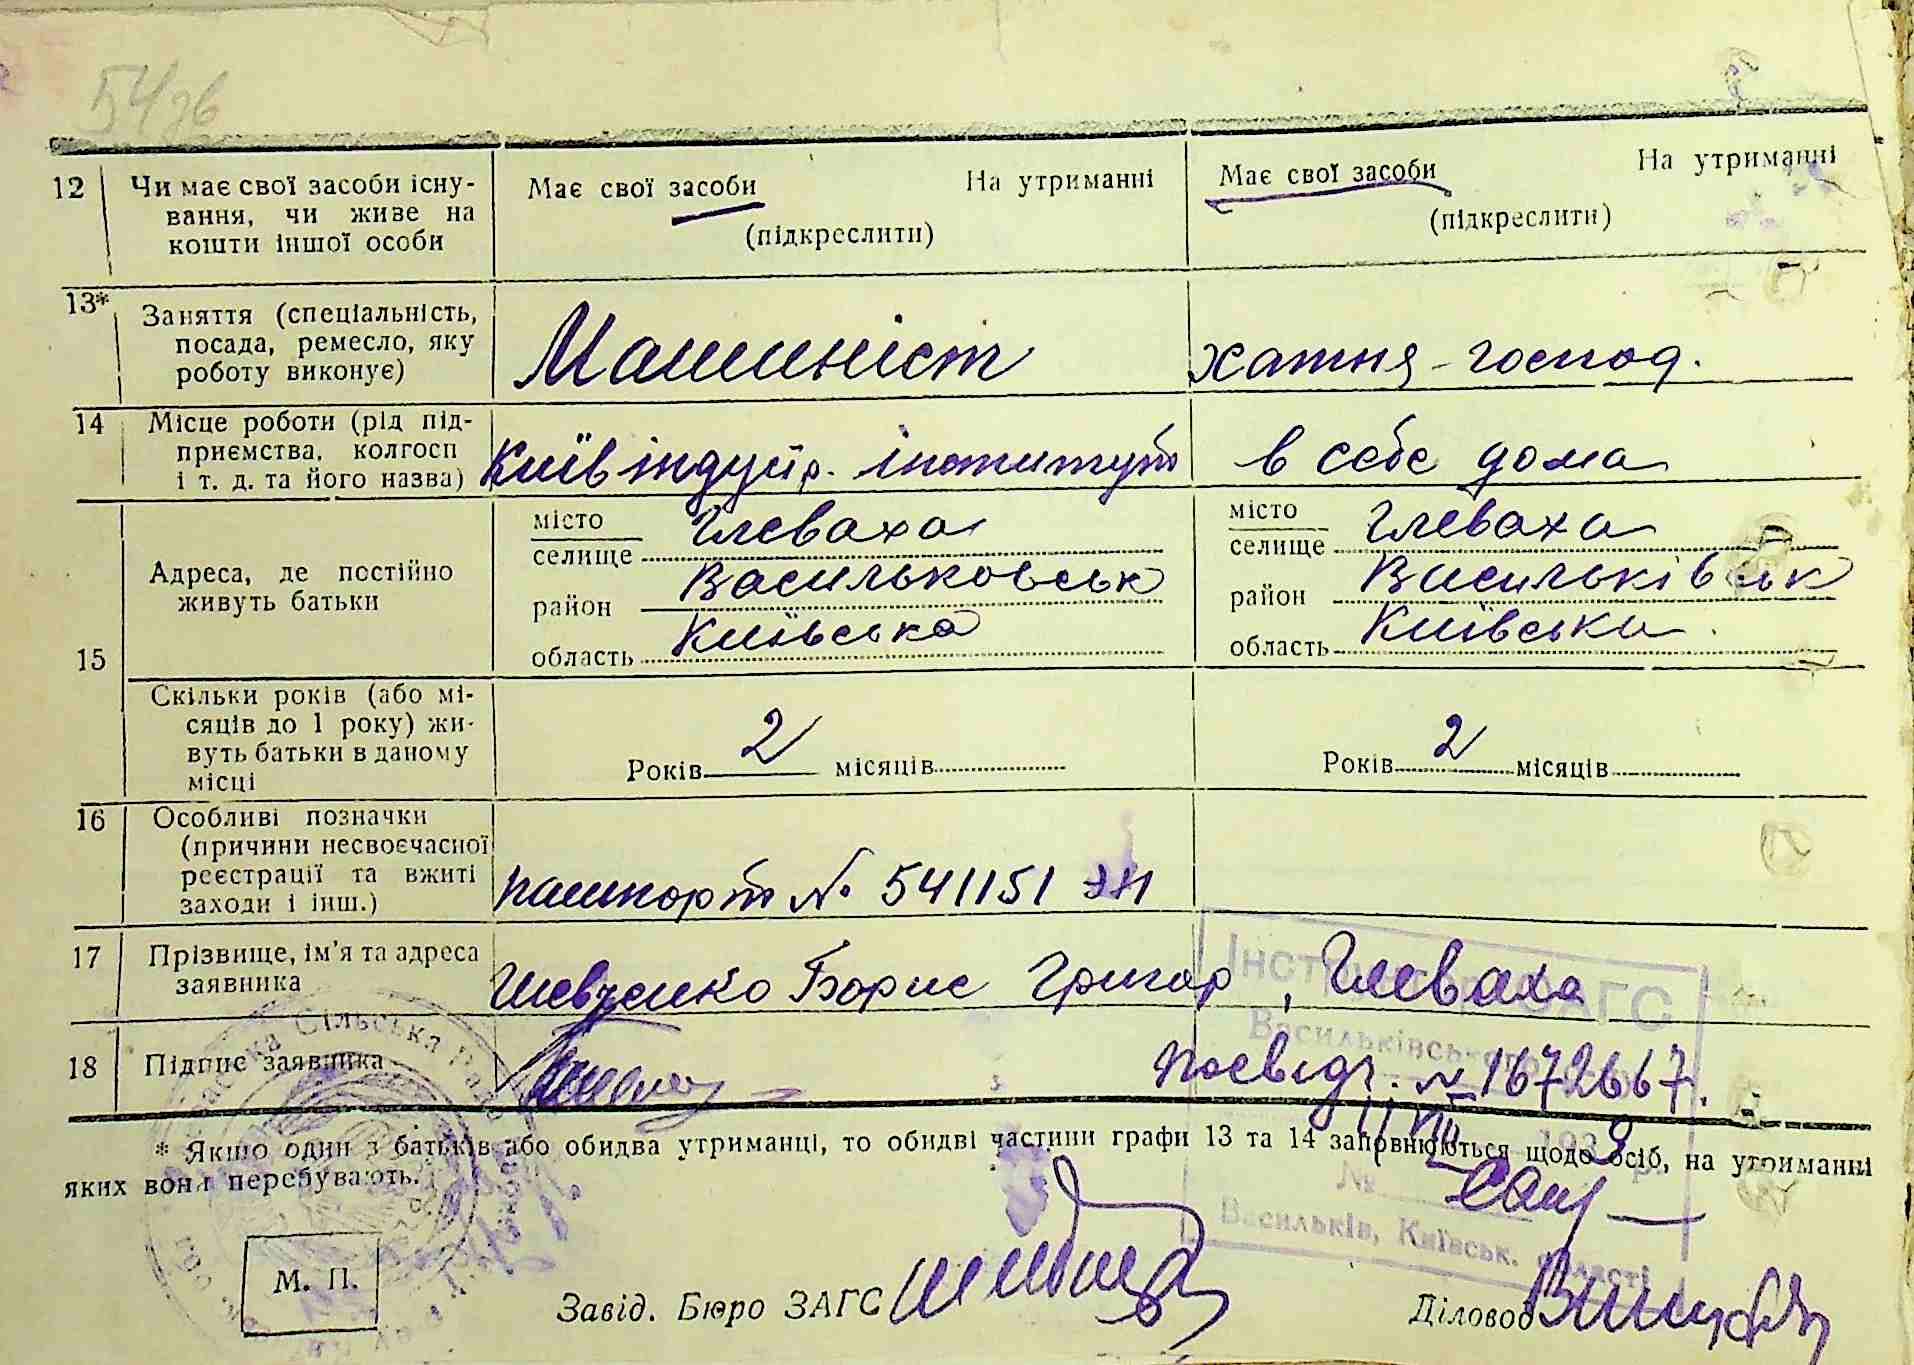 54 зв
12 Чи має свої засоби існу- Має свої засоби На утриманні Має свої засоби На утриманні
вання, чи живе на (підкреслити) (підкреслити)
кошти іншої особи
13* Заняття (спеціальність,
посада, ремесло, яку Машиніст хатня-господ.
роботу виконує)
14 Місце роботи (рід під-
приємства, колгосп Київ індустр. інститут в себе дома
і т. д. та його назва)
15 Адреса, де постійно живуть батьки
місто селище Глеваха місто селище Глеваха
район Васильковськ район Васильківськ
область Київська область Київська
Скільки років (або мі-
сяців до 1 року) жи-
вуть батьки в даному Років 2 місяців Років 2 місяців
місці
16 Особливі позначки
(причини несвоєчасної
реєстрації та вжиті
заходи і інш.) пашпорт № 541151
17 Прізвище, ім'я та адреса
заявника Шевченко Борис Григор, Глеваха
18 Підпис заявника
Посвідч. № 1672667.
11 VII 1939 р.
* Якщо один з батьків або обидва утриманці, то обидві частини графи 13 та 14 заповнюються щодо осіб, на утриманні
яких вони перебувають.
Інструктор ЗАГС
Васильківського
№
Васильків, Київськ. області
Сільська Рада
М. П.
Завід. Бюро ЗАГС Діловод